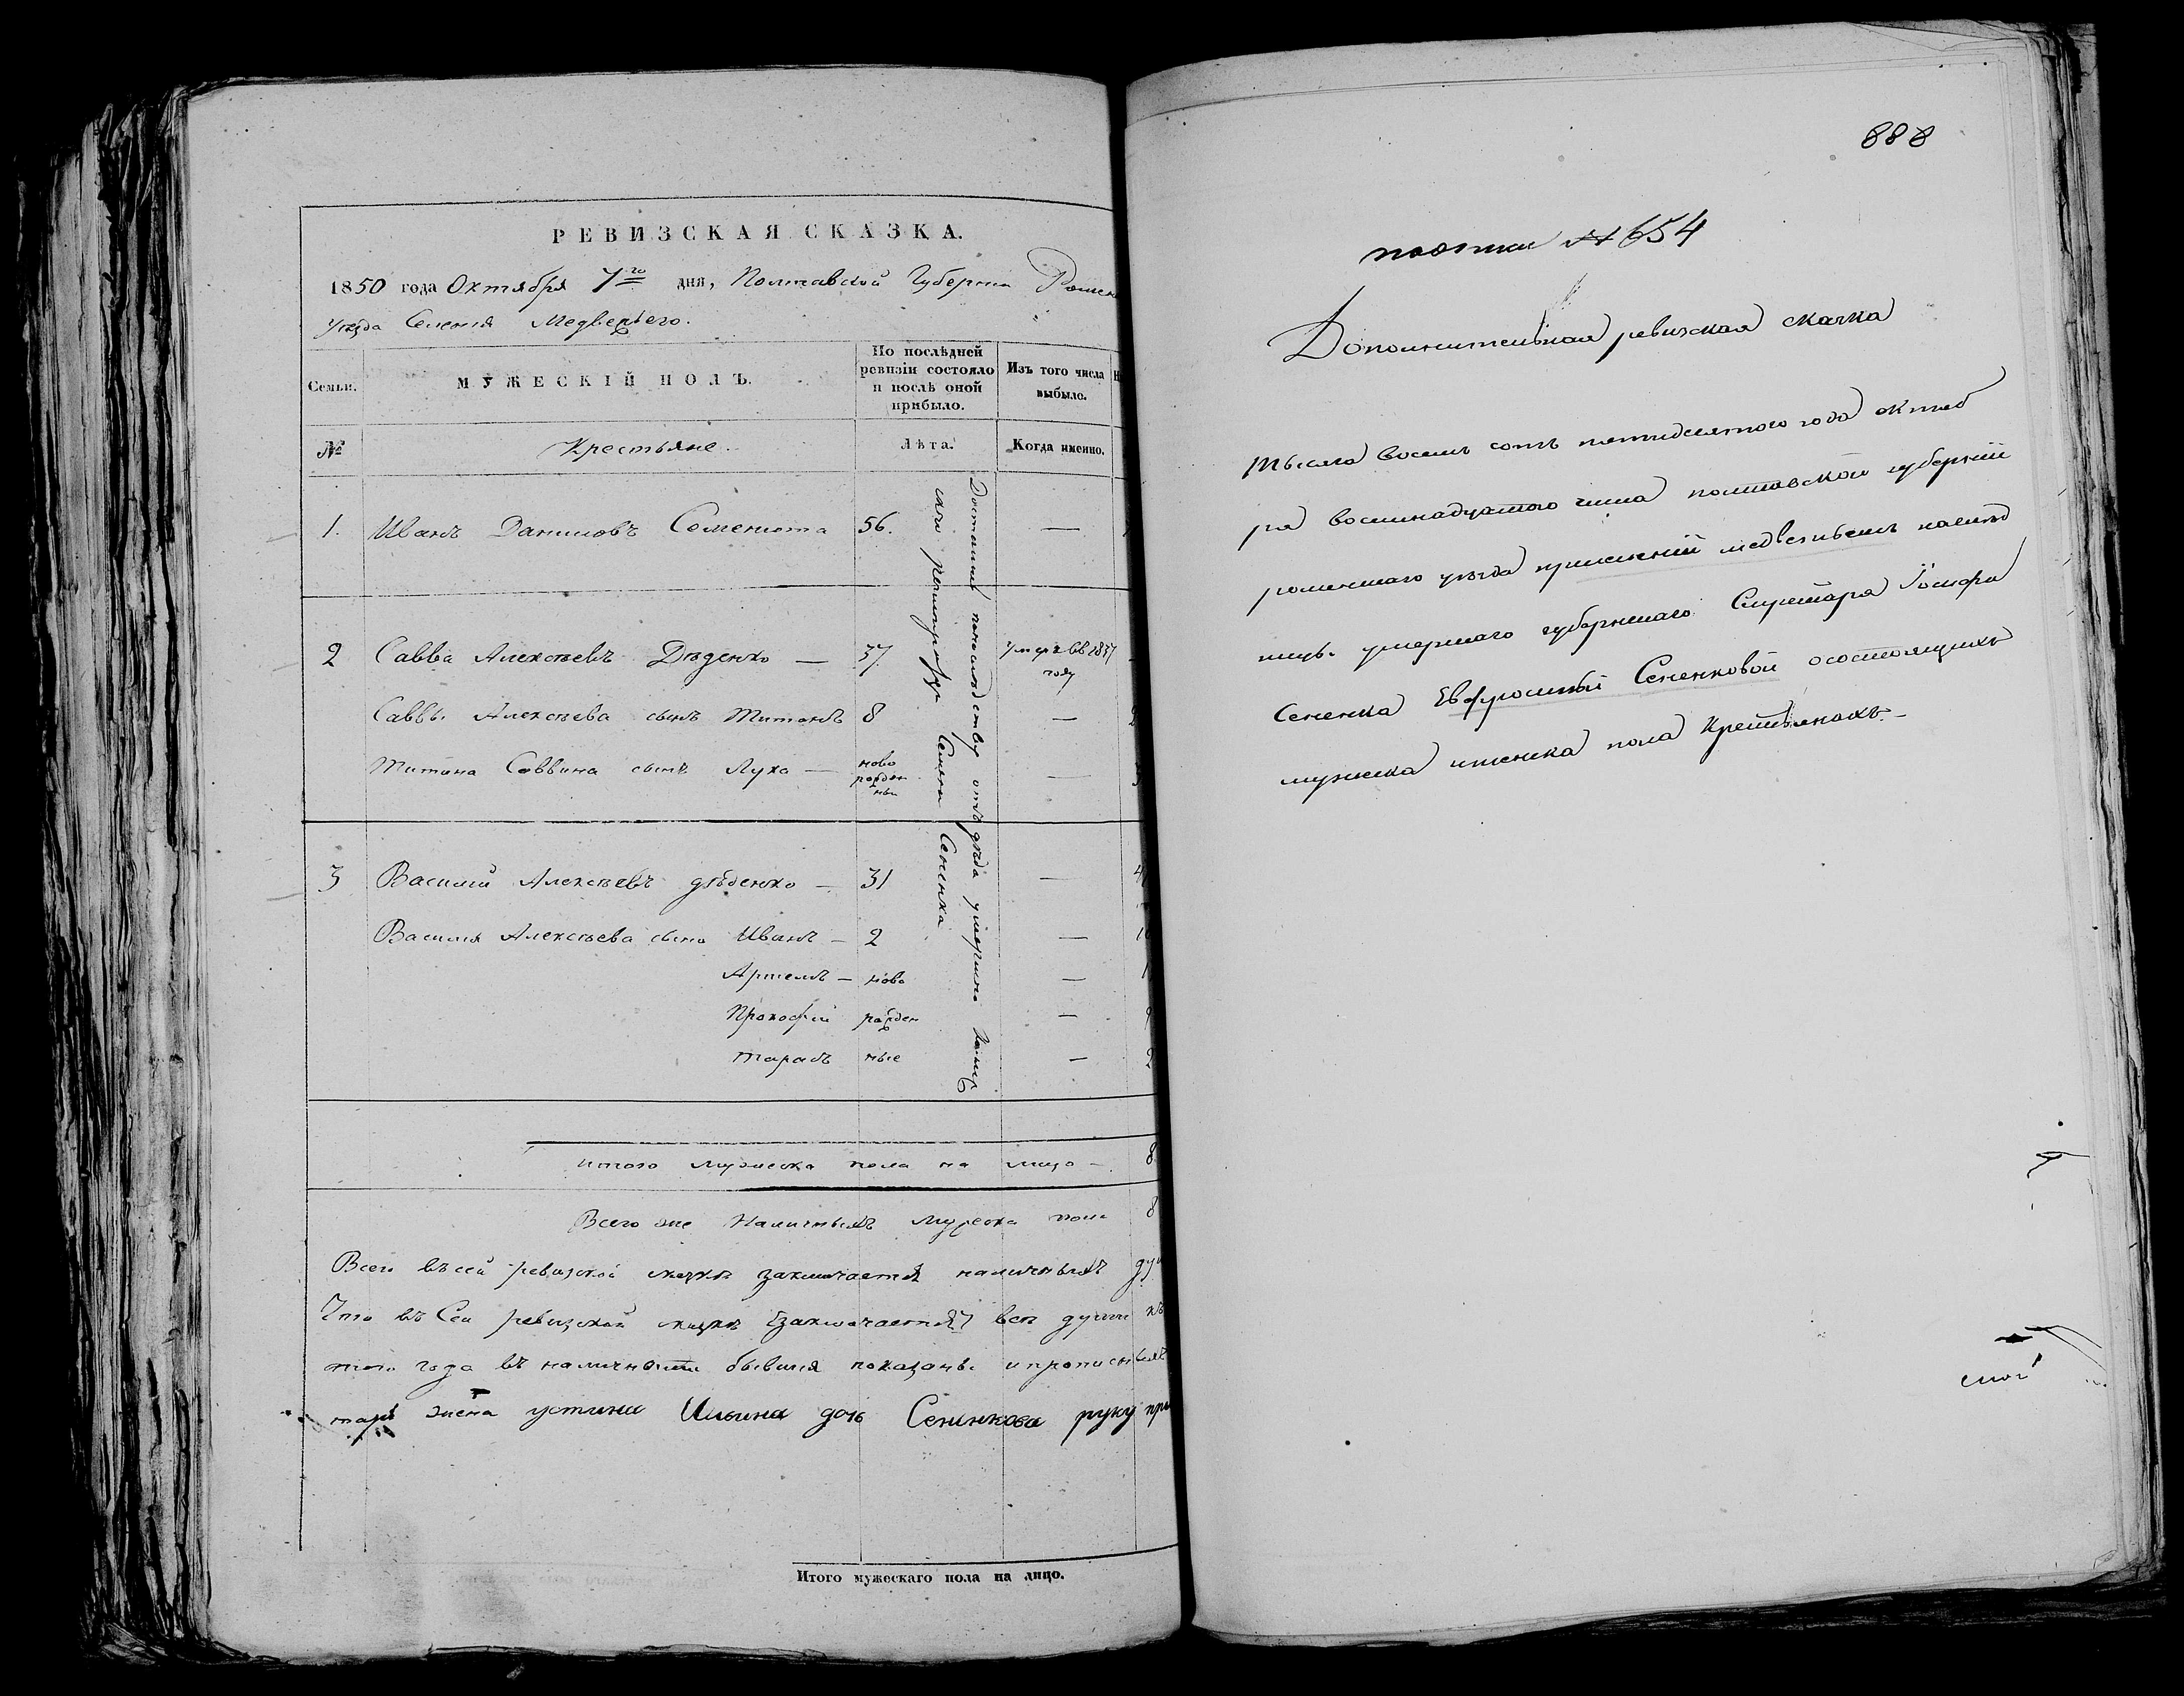 РЕВИЗСКАЯ СКАЗКА.
1850 года Октября 7го дня, Полтавской Губерни Ромен
уезда Селенія Медвежьего.
Семьи.
МУЖЕСКІЙ ПОЛЪ.
По послѣдней ревизіи состояло и послѣ оной прибыло.
Изъ того числа выбыло.
№
Крестьяне.
Лѣта.
Когда именно.
1. Иванъ Даниловъ Соменюта 56. —
2 Савва Алексѣевъ Дѣденко — 37 умеръ въ 1837 году
Саввы Алексѣева сынъ Титонъ 8 —
Титона Саввина сынъ Лука — ново рожден ны —
3 Василій Алексѣевъ дѣденко — 31 —
Василія Алексѣева сыны Иванъ — 2 —
Артемъ — ново —
Прокофій рожден —
Тарасъ ные —
Достались понаслѣдству отъ дѣда умершаго
регистратора Семена Сененка
итого мужеска пола на лицо — 8
Всего же Наличныхъ мужеска пола 8
Всего въ сей ревизской сказкѣ заключается наличныхъ ду
Что въ Сей ревизской сказкѣ заключается всѣ души
того года въ наличности бывшія показаны и прописныхъ
жена устина Ильина дочь Сененкова руку при
Итого мужескаго пола на лицо.
888
№ 654
Дополнительная ревизская скаска
Тысяча восемъ сотъ пятидесятого года октяб
ря восминадцатого числа полтавской губерніи
роменшаго уѣзда медвежьемъ наслѣд
ницы умершаго губерншаго Секретара Іосифа
Сененка Евфросиніи Сененковой осостоящихъ
мужеска иженска пола Крестьянахъ.—